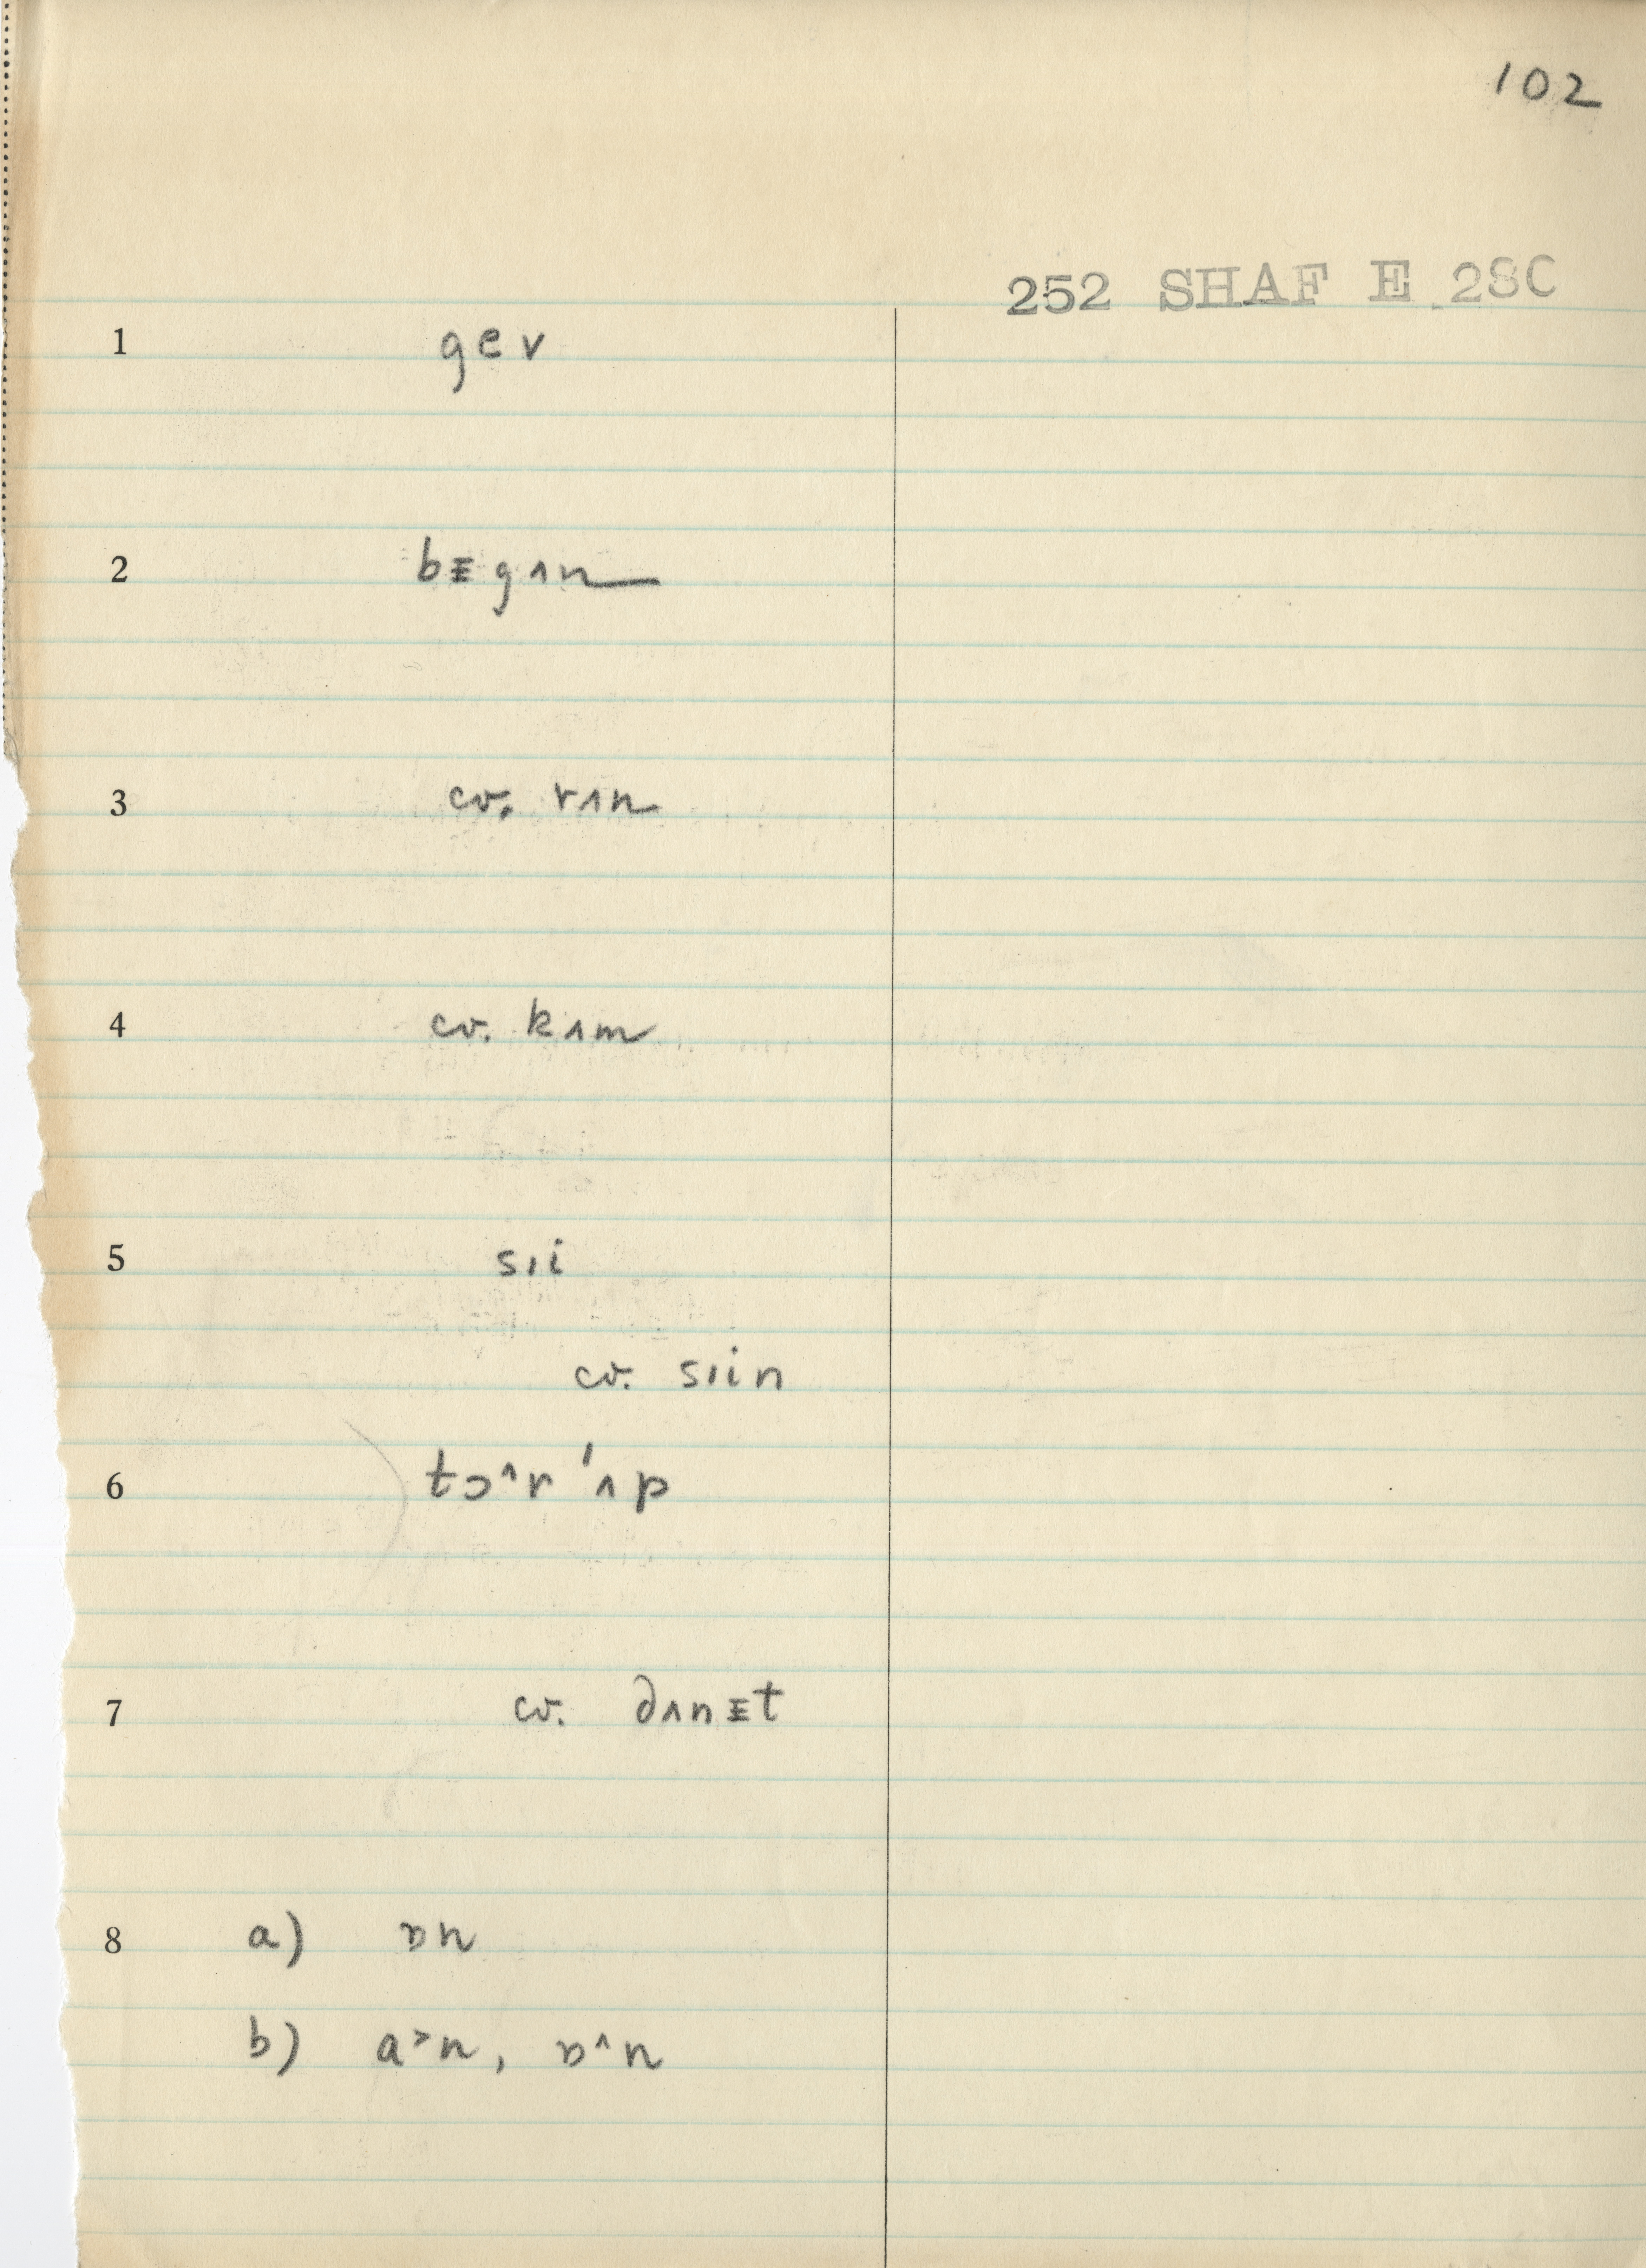 102
252 SHAF E 28C
1 gev
2 bᵻgʌn
3 cv. rʌn
4 cv. kʌm
5 sıi
cv. sıin
6 tɔ^r 'ʌp
7 cv. ðʌnᵻt
8 a) ɒn
b) a>n, ɒ^n